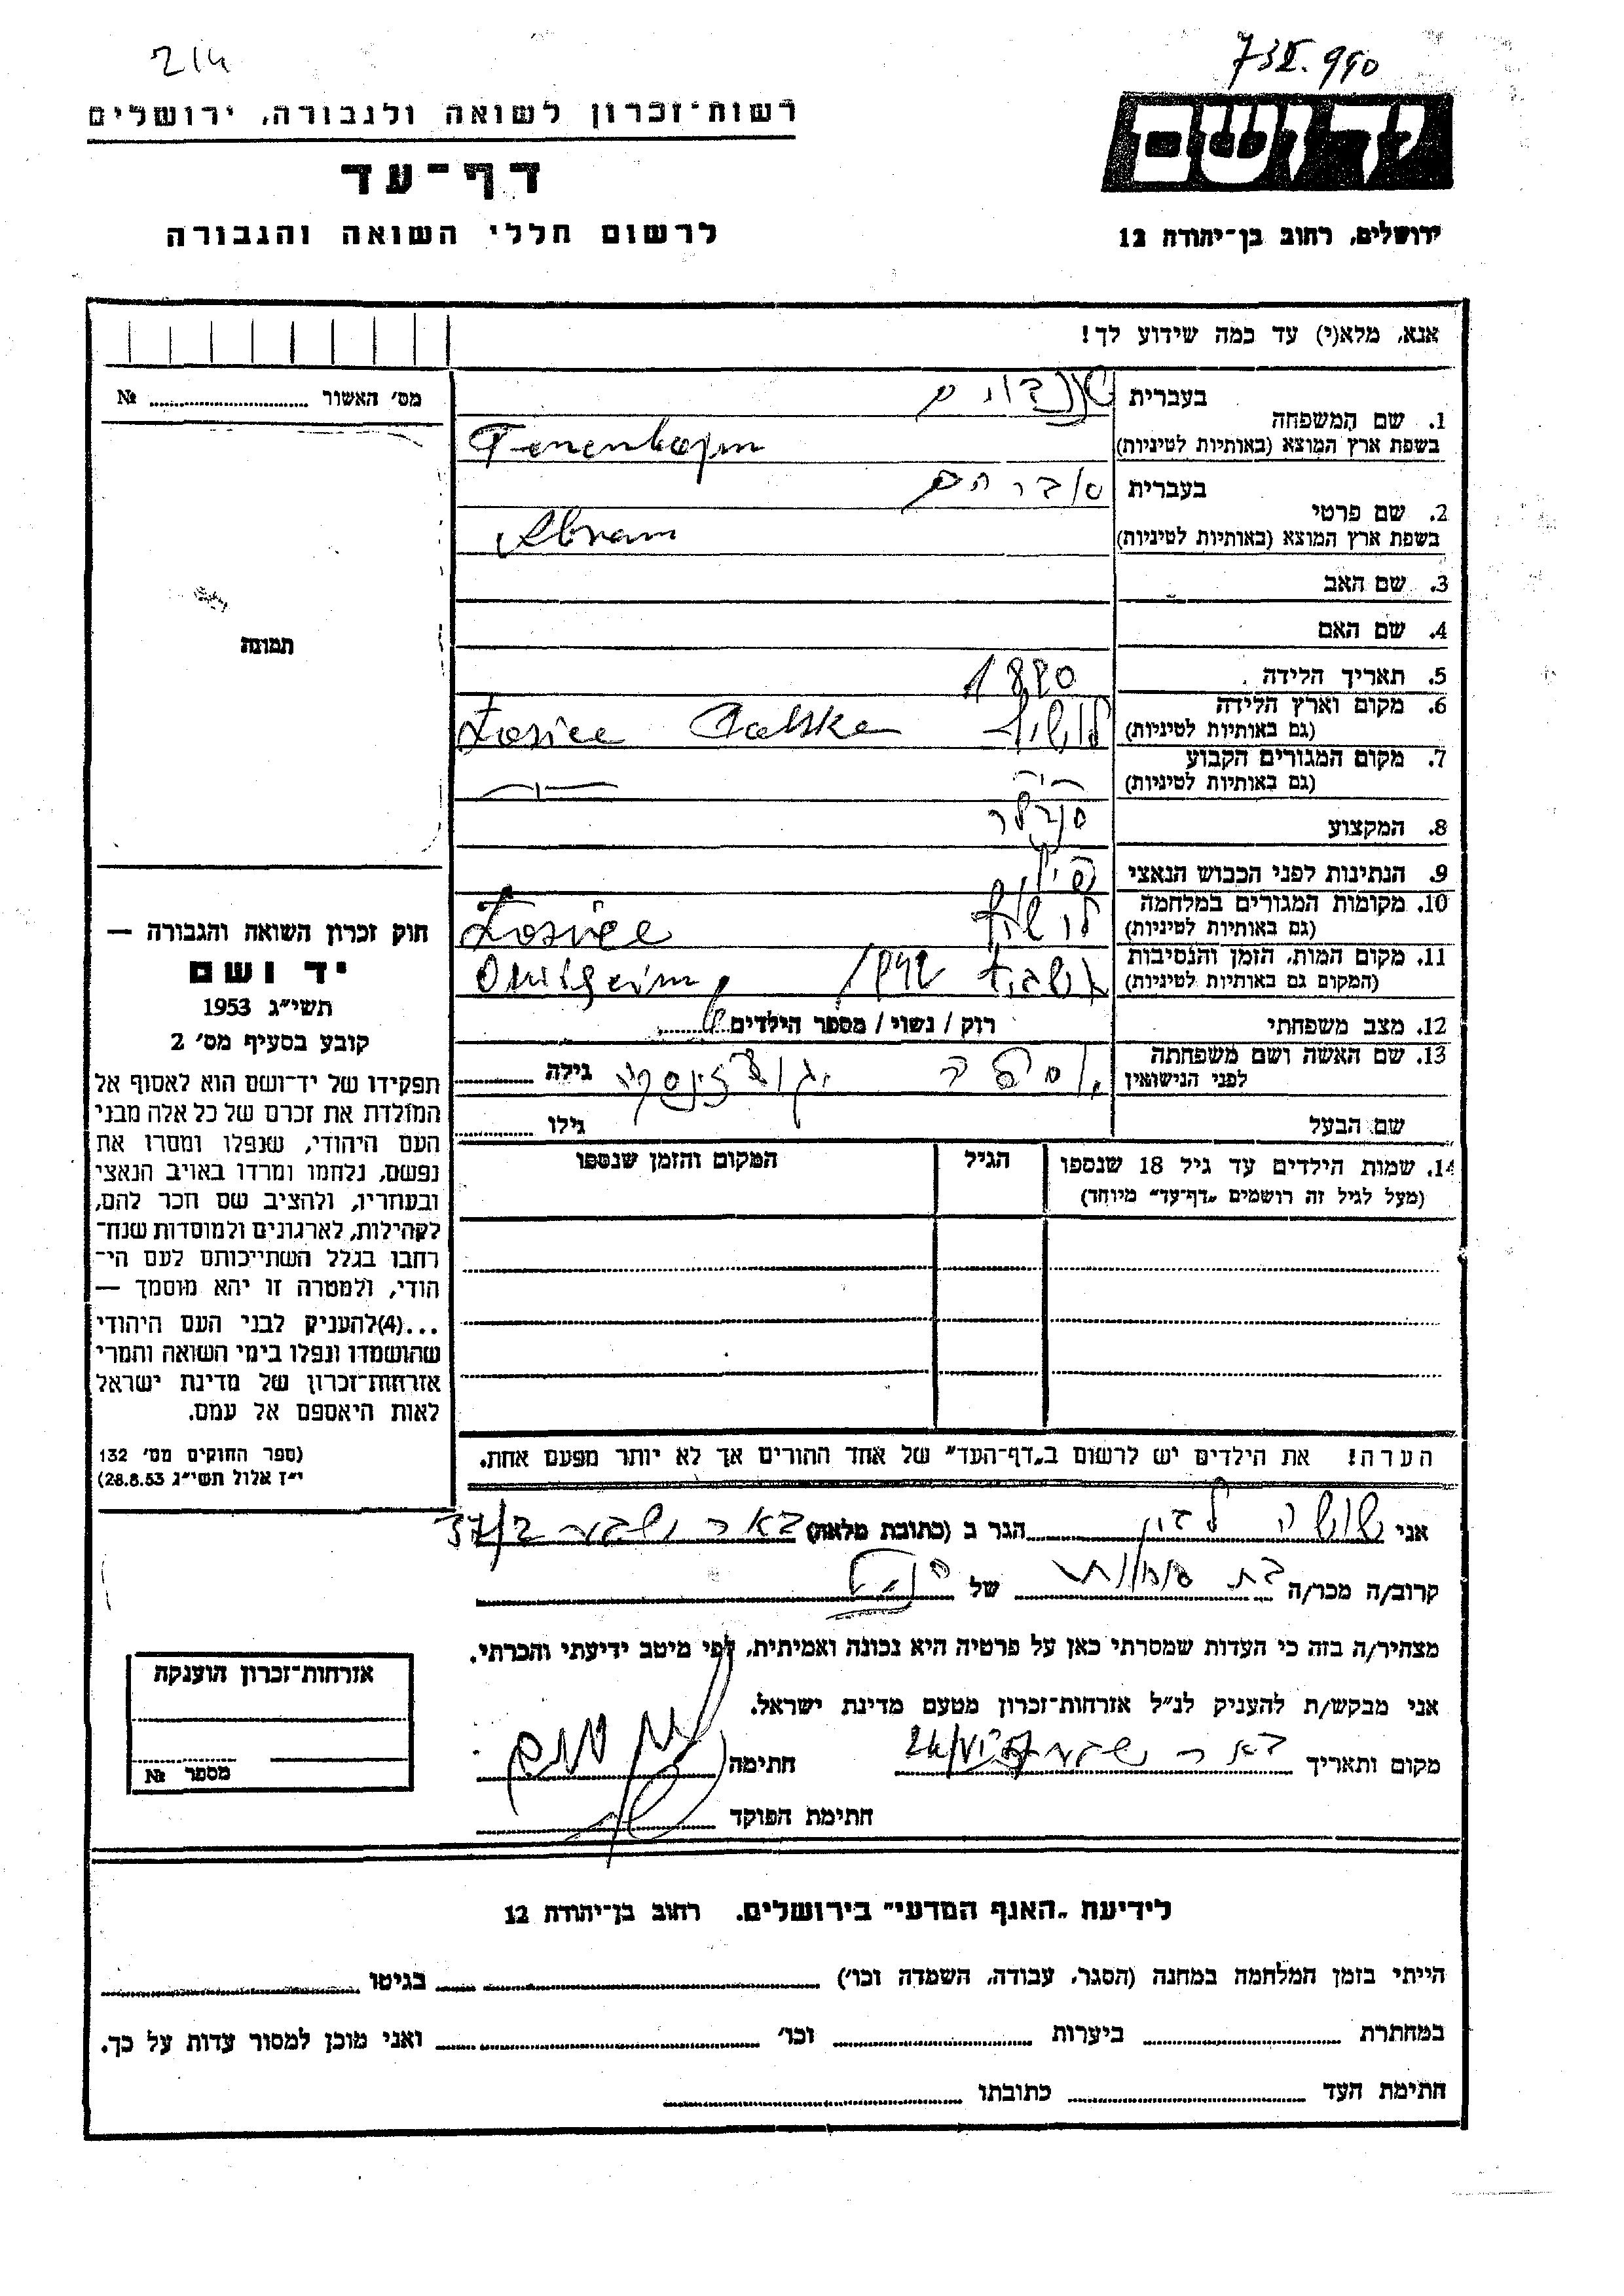 214
732.990
רשות־זכרון לשואה ולגבורה, ירושלים
דף־עד
לרשום חללי השואה והגבורה
יד ושם
ירושלים, רחוב בן־יהודה 12
אנא, מלא(י) עד כמה שידוע לך!
מס׳ האשור № ........
1. שם המשפחה
בעברית
בשפת ארץ המוצא (באותיות לטיניות) Tenenbojm
2. שם פרטי
בעברית אברהם
בשפת ארץ המוצא (באותיות לטיניות) Abram
3. שם האב
4. שם האם
5. תאריך הלידה 1880
6. מקום וארץ הלידה
(גם באותיות לטיניות) Łosice Polska
7. מקום המגורים הקבוע
(גם באותיות לטיניות)
8. המקצוע
9. הנתינות לפני הכבוש הנאצי
10. מקומות המגורים במלחמה
(גם באותיות לטיניות) Łosice
11. מקום המות, הזמן והנסיבות
(המקום גם באותיות לטיניות)
12. מצב משפחתי רוק / נשוי / מספר הילדים
13. שם האשה ושם משפחתה
לפני הנישואין גילה
שם הבעל גילו
14. שמות הילדים עד גיל 18 שנספו
(מעל לגיל זה רושמים „דף־עד״ מיוחד)
הגיל
המקום והזמן שנספו
הערה! את הילדים יש לרשום ב„דף־העד״ של אחד ההורים אך לא יותר מפעם אחת.
תמונה
חוק זכרון השואה והגבורה —
יד ושם
תשי״ג 1953
קובע בסעיף מס׳ 2
תפקידו של יד־ושם הוא לאסוף אל
המולדת את זכרם של כל אלה מבני
העם היהודי, שנפלו ומסרו את
נפשם, נלחמו ומרדו באויב הנאצי
ובעוזריו, ולהציב שם וזכר להם,
לקהילות, לארגונים ולמוסדות שנח־
רחבו בגלל השתייכותם לעם הי־
הודי, ולמטרה זו יהא מוסמך —
...(4)להעניק לבני העם היהודי
שהושמדו ונפלו בימי השואה והמרי
אזרחות־זכרון של מדינת ישראל
לאות היאספם אל עמם.
(ספר החוקים מס׳ 132
י״ז אלול תשי״ג 28.8.53)
אני שושנה הגר ב (כתובת מלאה) באר שבע
קרוב/ה מכר/ה בת של
מצהיר/ה בזה כי העדות שמסרתי כאן על פרטיה היא נכונה ואמיתית, לפי מיטב ידיעתי והכרתי.
אני מבקש/ת להעניק לנ״ל אזרחות־זכרון מטעם מדינת ישראל.
מקום ותאריך באר שבע חתימה
חתימת הפוקד
אזרחות־זכרון הוענקה
מספר №
לידיעת „האגף המדעי״ בירושלים. רחוב בן־יהודה 12
הייתי בזמן המלחמה במחנה (הסגר, עבודה, השמדה וכו׳) בגיטו
במחתרת ביערות וכו׳ ואני מוכן למסור עדות על כך.
חתימת העד כתובתו